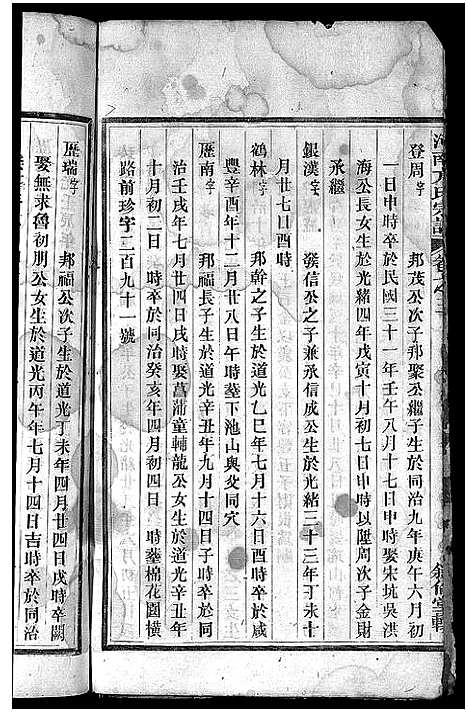 河南方氏宗譜
登周字 邦茂公次子邦聚公繼子生於同治九年庚午六月初
一日申時卒於民國三十一年壬午八月十七日申時娶宋坑吳洪
海公長女生於光緒四年戊寅十月初七日申時以陞周次子金財
承繼
銀漢字 漢信公之子兼承信成公生於光緒三十三年丁未十
月廿七日酉時
鶴林字 邦幹之子生於道光乙巳年七月十六日酉時卒於咸
豐辛酉年十二月廿八日午時塟下池山與父同穴
歷南字 邦福長子生於道光辛丑年九月十四日子時卒於同
治壬戌年七月廿四日戌時娶菖蒲童輔龍公女生於道光辛丑年
十月初二日 時卒於同治癸亥年四月初四日 時塟棉花園橫
路前珍字二百九十一號
歷瑞字 邦福公次子生於道光丁未年四月廿四日戌時卒闕
娶無求魯初朋公女生於道光丙午年七月十四日吉時卒於同治